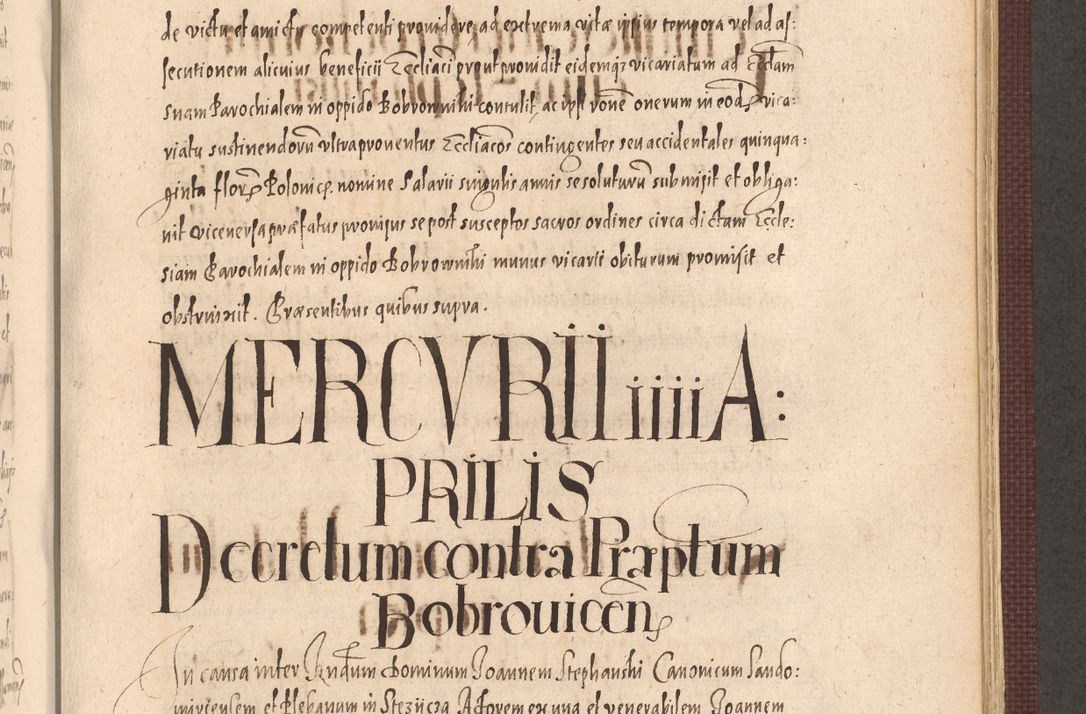 de victu et amictu competenti providere, ad extrema vitæ ipsius tempora vel ad as:
secutionem alicuius beneficii Eccliaci prout providit eidemq; vicariatum ad Eccłam
suam Parochialem in oppido Bobrowniki contulit, ac ipsi rõne onerum in eod. vica:
viatu sustinendorũ ultra proventus Eccliacos contingentes seu accidentales quinqua:
ginta flor. Polonic. nomine Salarii singulis annis se soluturũ submisit et obliga:
vit viceversa præfatus promisus se post susceptos sacros ordines circa dictam Eccle:
siam Parochialem in oppido Bobrowniki munus vicarii obiturum promisit et
obstrinxit. Præsentibus quibus supra.
MERCVRII iiii A:
PRILIS
Decretum contra Præptum
Bobrouiceñ
In causa inter Rndum Dominum Joannem Stephanski Canonicum Sando:
miriensem et Plebanum in Stezijcza Actorem ex una et venerabilem Joannem